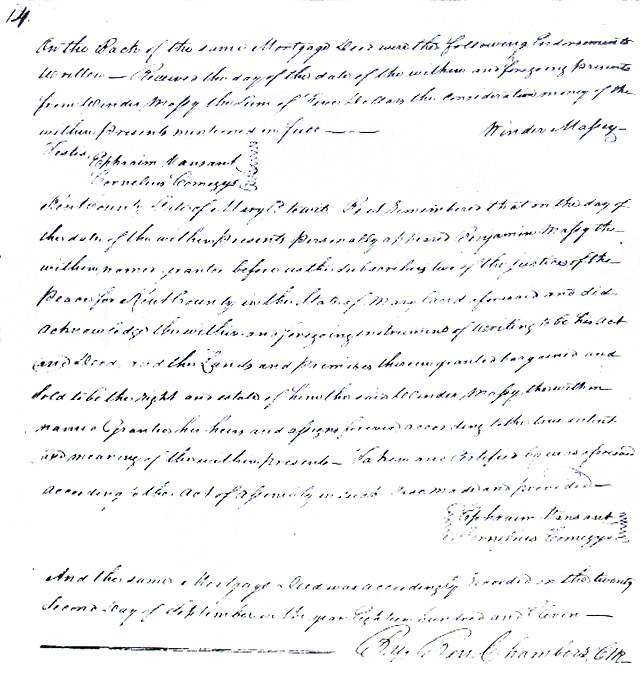 14.
On the Back of the same Mortgage Deed were the following Endorsements
Written — Received the day of the date of the within and foregoing Presents
from Winder Massy the Sum of Five Dollars the Consideration money of the
within presents mentioned in full — — Winder Massey
Testes Ephraim Vansant
Cornelius Comegys
Kent County State of Maryld to wit Be it Remembered that on the day of
the date of the within presents personally appeared Benjamin Massy the
within named grantor before us the Subscribers two of the justices of the
Peace for Kent County in the State of Maryland aforesaid and did
acknowledge the within and foregoing instrument of writing to be his act
and Deed, and the Lands and Premises therein granted bargained and
Sold to be the right and estate of him the said Winder Massy the within
named Grantee his heirs and assigns forever according to the true intent
and meaning of the within presents — Taken and Certified by us aforesaid
according to the Act of Assembly in such Case made and provided —
Ephraim Vansant
Cornelius Comegys
And the same Mortgage Deed was accordingly Recorded on the twenty
Second Day of September in the year Eighteen hundred and Eleven —
By, Ben Chambers, Clk